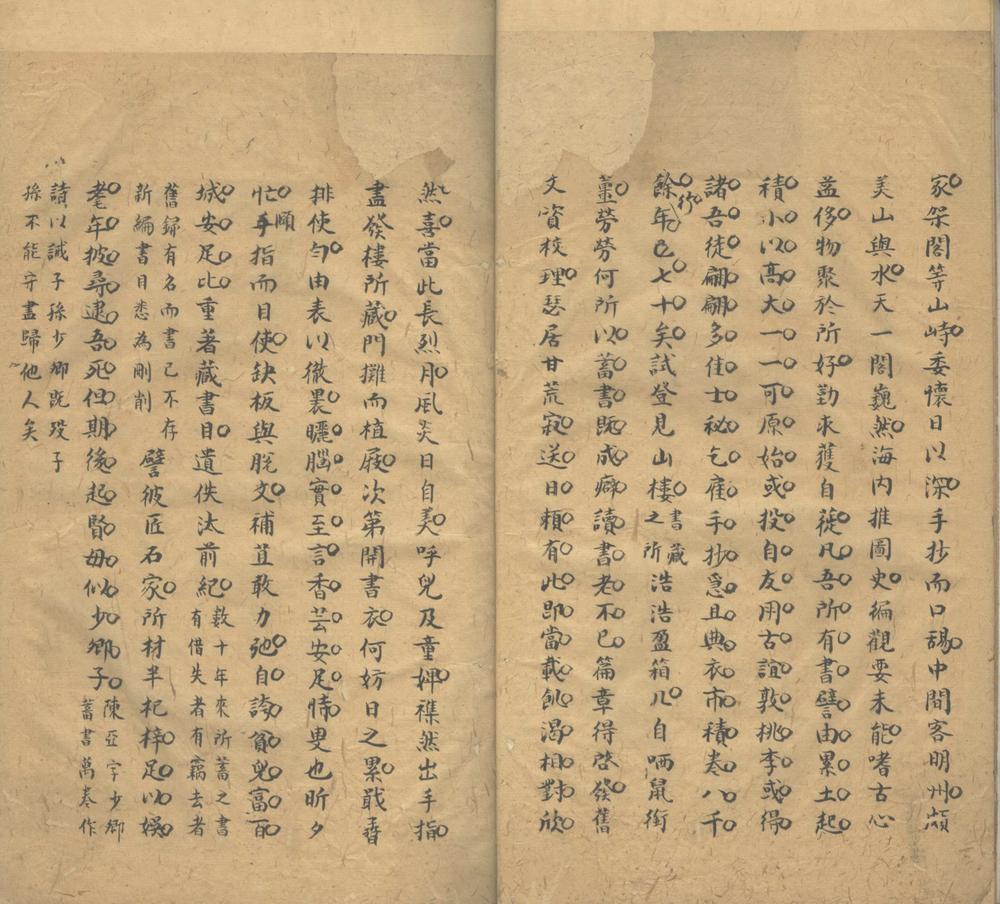 家架閣等山峙委懷日以深手抄而口誦中間客明州頗
美山與水天一閣巍然海内推圖史徧觀要未能嗜古心
益侈物聚於所好勤求獲自蓰凡吾所有書譬由累土起
積小以高大一一可原始或投自友用古誼敦桃李或得
諸吾徒翩翩多佳士秘乞雇手抄急且典衣市積卷八千
餘年已七十矣試登見山樓藏書之所浩浩盈箱几自哂鼠銜
薑勞勞何所以蓄書既成癖讀書老不已篇章得啓發舊
文資校理瑟居甘荒寂送日賴有此即當載飢渴相對欣
然喜當此長烈月風炎日自美呼兒及童婢襍然出手指
盡發樓所藏門攤而植屐次第開書衣何妨日之累戢孴
排使勻由表以徹裏曬腦實至言香芸安足恃叟也昕夕
忙順手指而目使缺板與脱文補苴敢力弛自誇貧兒富百
城安足比重著藏書目遺佚汰前紀數十年來所蓄之書有借失者有竊去者
舊録有名而書已不存新編書目悉為刪削譬彼匠石家所材半杞梓足以娛
耄年披尋逮吾死但期後起賢毋似少卿子陳亞字少卿蓄書萬卷作
詩以誡子孫少卿既歿子孫不能守盡歸他人矣